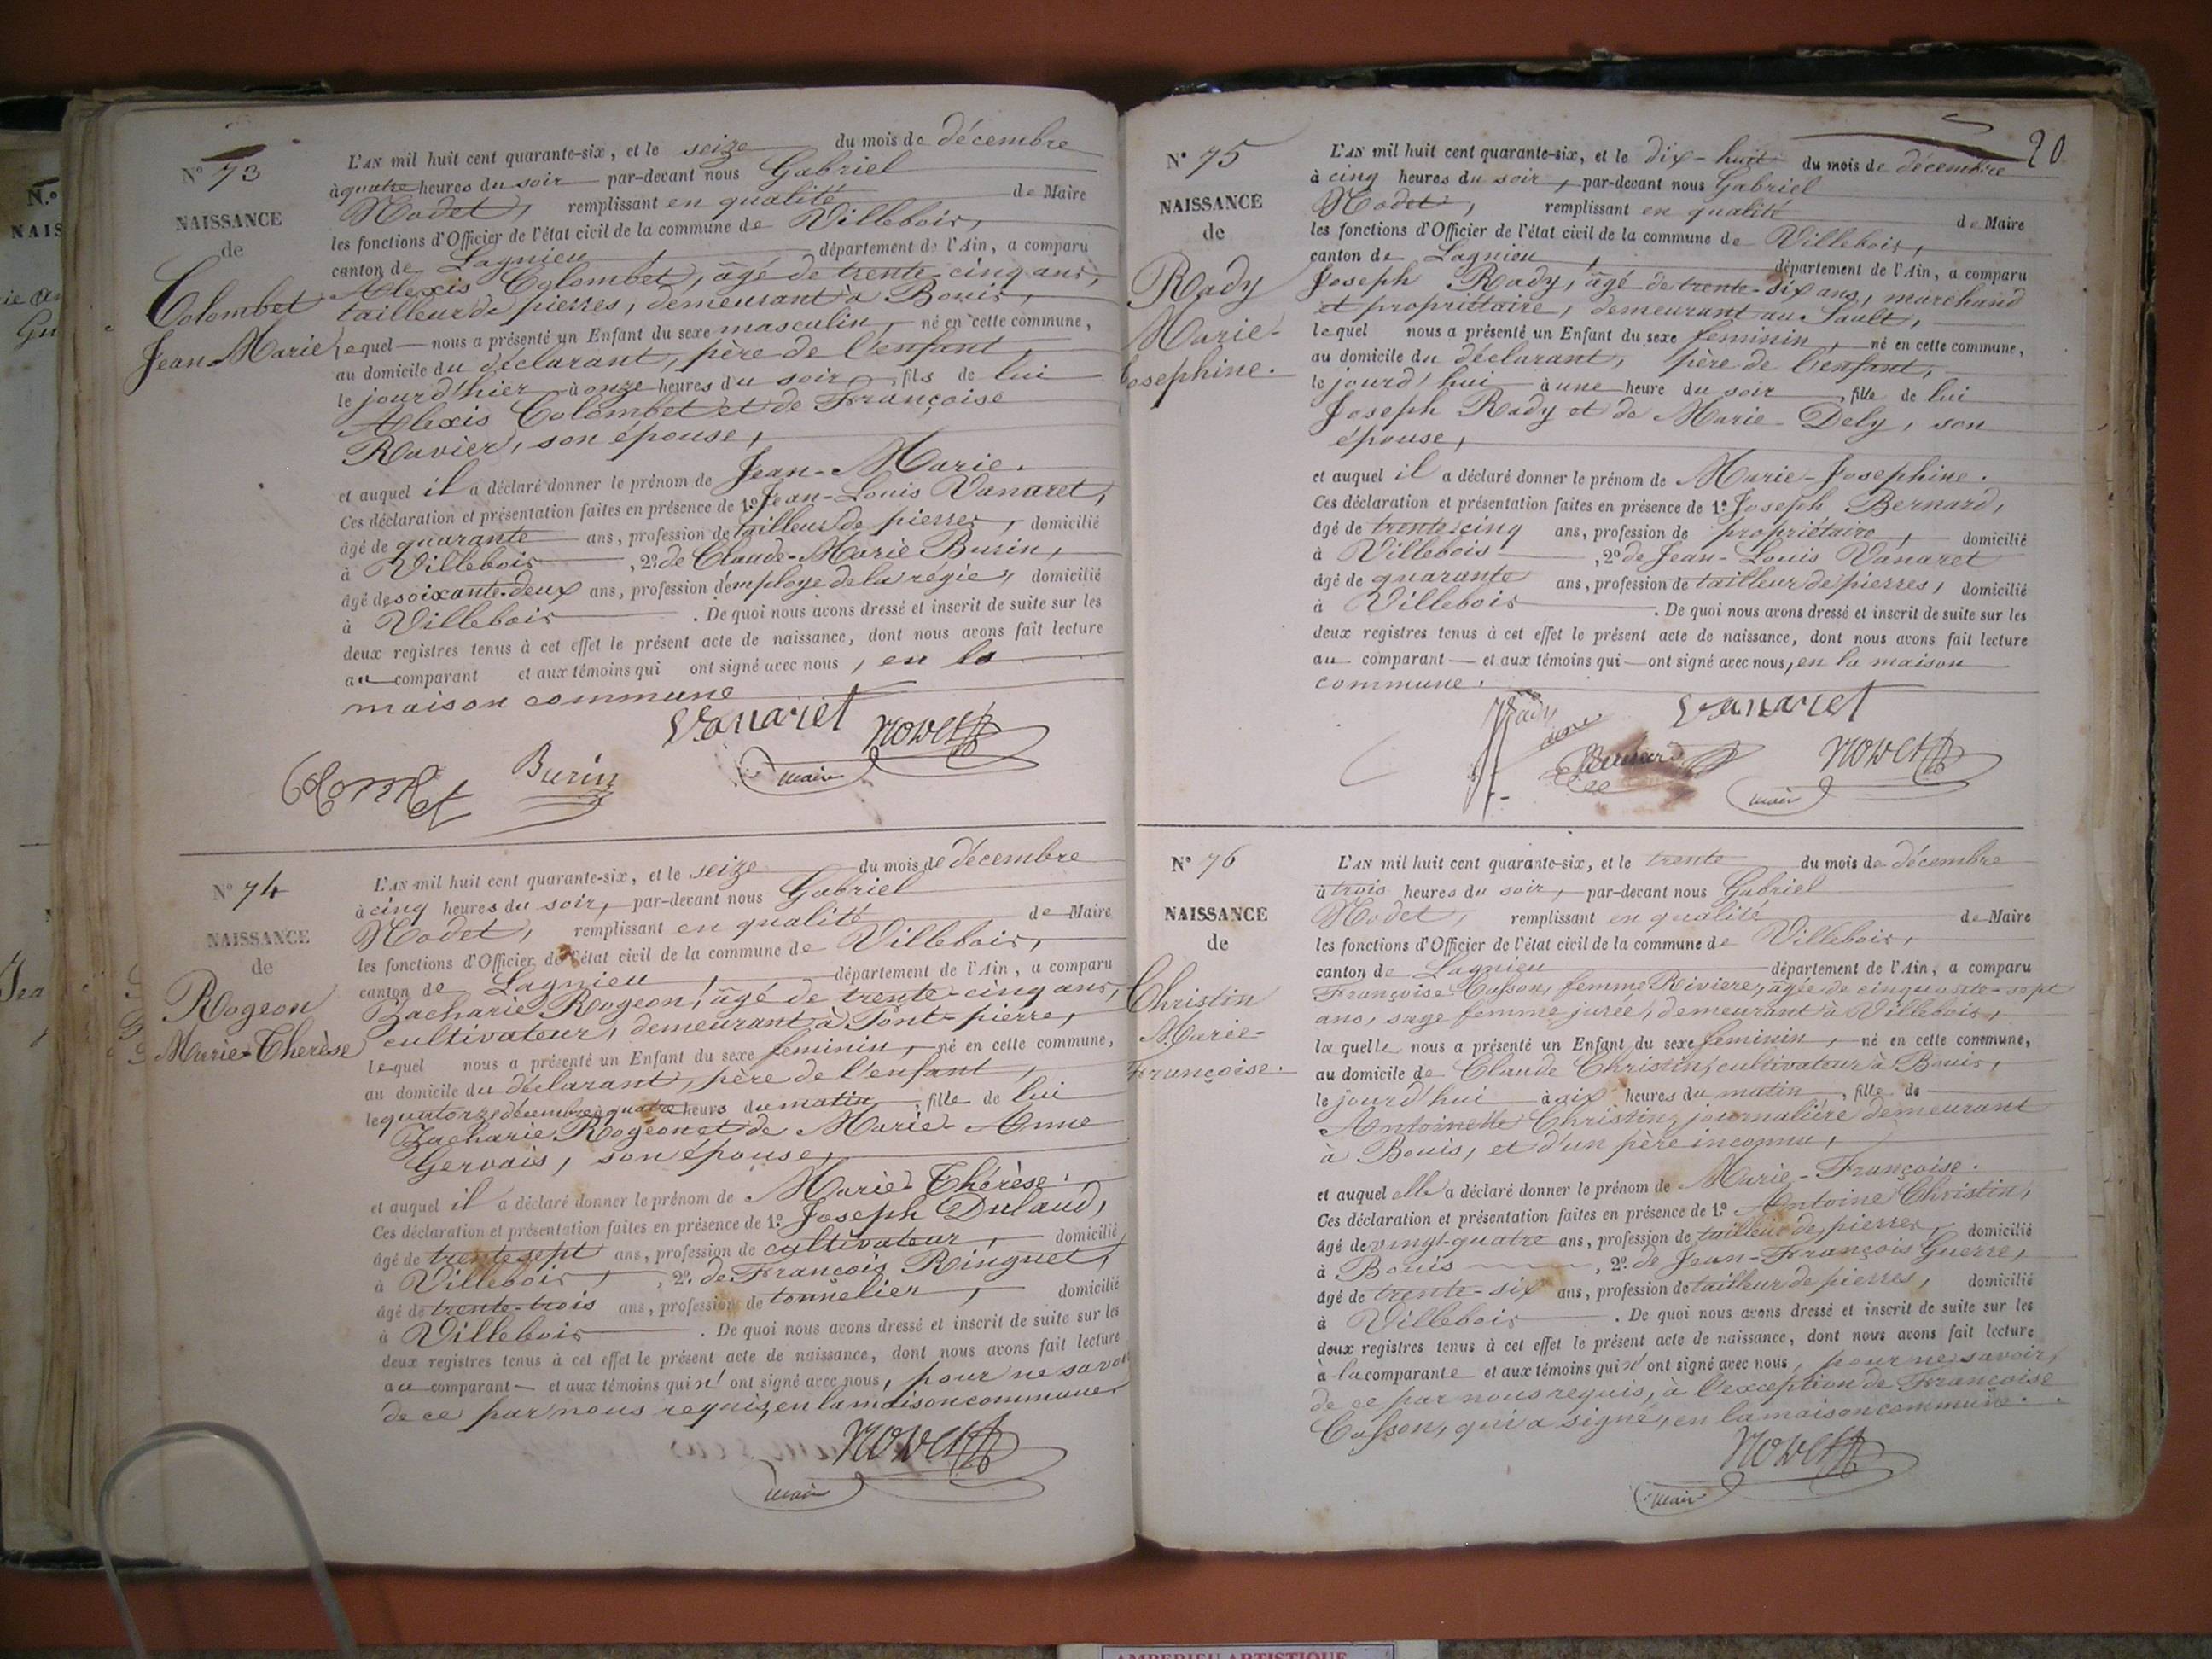 N.º
NAIS
Gu
Nº 73
NAISSANCE
de
Colombet
Jean-Marie
L'AN mil huit cent quarante-six, et le seize du mois de décembre
à quatre heures du soir par-devant nous Gabriel
Nodet, remplissant en qualité de Maire
les fonctions d'Officier de l'état civil de la commune de Villebois,
canton de Lagnieu, département de l'Ain, a comparu
Alexis Colombet, âgé de trente-cinq ans,
tailleur de pierres, demeurant à Bouis,
lequel nous a présenté un Enfant du sexe masculin, né en cette commune,
au domicile du déclarant, père de l'enfant,
le jourd'hier à onze heures du soir, fils de lui
Alexis Colombet et de Françoise
Ravier, son épouse,
et auquel il a déclaré donner le prénom de Jean-Marie.
Ces déclaration et présentation faites en présence de 1º Jean-Louis Vanaret,
âgé de quarante ans, profession de tailleur de pierres, domicilié
à Villebois, 2º de Claude-Marie Burin,
âgé de soixante-deux ans, profession d'employé de la régie, domicilié
à Villebois. De quoi nous avons dressé et inscrit de suite sur les
deux registres tenus à cet effet le présent acte de naissance, dont nous avons fait lecture
au comparant et aux témoins qui ont signé avec nous, en la
maison commune
Vanaret Nodet
Colombet Burin maire
Nº 74
NAISSANCE
de
Rogeon
Marie-Thérèse
L'AN mil huit cent quarante-six, et le seize du mois de décembre
à cinq heures du soir, par-devant nous Gabriel
Nodet, remplissant en qualité de Maire
les fonctions d'Officier de l'état civil de la commune de Villebois,
canton de Lagnieu, département de l'Ain, a comparu
Zacharie Rogeon, âgé de trente-cinq ans,
cultivateur, demeurant à Pont-pierre,
lequel nous a présenté un Enfant du sexe féminin, né en cette commune,
au domicile du déclarant, père de l'enfant,
le quatorze décembre à quatre heures du matin, fille de lui
Zacharie Rogeon et de Marie-Anne
Gervais, son épouse,
et auquel il a déclaré donner le prénom de Marie-Thérèse.
Ces déclaration et présentation faites en présence de 1º Joseph Dulaud,
âgé de trente-sept ans, profession de cultivateur, domicilié
à Villebois, 2º de François Ringuet,
âgé de trente-trois ans, profession de tonnelier, domicilié
à Villebois. De quoi nous avons dressé et inscrit de suite sur les
deux registres tenus à cet effet le présent acte de naissance, dont nous avons fait lecture
au comparant et aux témoins qui n'ont signé avec nous, pour ne savoir
de ce par nous requis, en la maison commune
Nodet
maire
20
Nº 75
NAISSANCE
de
Rady
Marie-
Josephine.
L'AN mil huit cent quarante-six, et le dix-huit du mois de décembre
à cinq heures du soir, par-devant nous Gabriel
Nodet, remplissant en qualité de Maire
les fonctions d'Officier de l'état civil de la commune de Villebois,
canton de Lagnieu, département de l'Ain, a comparu
Joseph Rady, âgé de trente-six ans, marchand
et propriétaire, demeurant au Sault,
lequel nous a présenté un Enfant du sexe féminin, né en cette commune,
au domicile du déclarant, père de l'enfant,
le jourd'hui à une heure du soir, fille de lui
Joseph Rady et de Marie Dely, son
épouse,
et auquel il a déclaré donner le prénom de Marie-Josephine.
Ces déclaration et présentation faites en présence de 1º Joseph Bernard,
âgé de trente-cinq ans, profession de propriétaire, domicilié
à Villebois, 2º de Jean-Louis Vanaret
âgé de quarante ans, profession de tailleur de pierres, domicilié
à Villebois. De quoi nous avons dressé et inscrit de suite sur les
deux registres tenus à cet effet le présent acte de naissance, dont nous avons fait lecture
au comparant et aux témoins qui ont signé avec nous, en la maison
commune.
Rady Vanaret
Bernard Nodet
maire
Nº 76
NAISSANCE
de
Christin
Marie-
Françoise.
L'AN mil huit cent quarante-six, et le trente du mois de décembre
à trois heures du soir, par-devant nous Gabriel
Nodet, remplissant en qualité de Maire
les fonctions d'Officier de l'état civil de la commune de Villebois,
canton de Lagnieu département de l'Ain, a comparu
Françoise Cusson, femme Riviere, âgée de cinquante-sept
ans, sage femme jurée, demeurant à Villebois,
laquelle nous a présenté un Enfant du sexe féminin, né en cette commune,
au domicile de Claude Christin, cultivateur à Bouis,
le jourd'hui à six heures du matin, fille de
Antoinette Christin, journalière demeurant
à Bouis, et d'un père inconnu,
et auquel elle a déclaré donner le prénom de Marie-Françoise.
Ces déclaration et présentation faites en présence de 1º Antoine Christin,
âgé de vingt-quatre ans, profession de tailleur de pierres, domicilié
à Bouis, 2º de Jean-François Guerre,
âgé de trente-six ans, profession de tailleur de pierres, domicilié
à Villebois. De quoi nous avons dressé et inscrit de suite sur les
deux registres tenus à cet effet le présent acte de naissance, dont nous avons fait lecture
à la comparante et aux témoins qui n'ont signé avec nous, pour ne savoir,
de ce par nous requis, à l'exception de Françoise
Cusson, qui a signé, en la maison commune.
Nodet
maire
AMBERIEU ARTISTIQUE